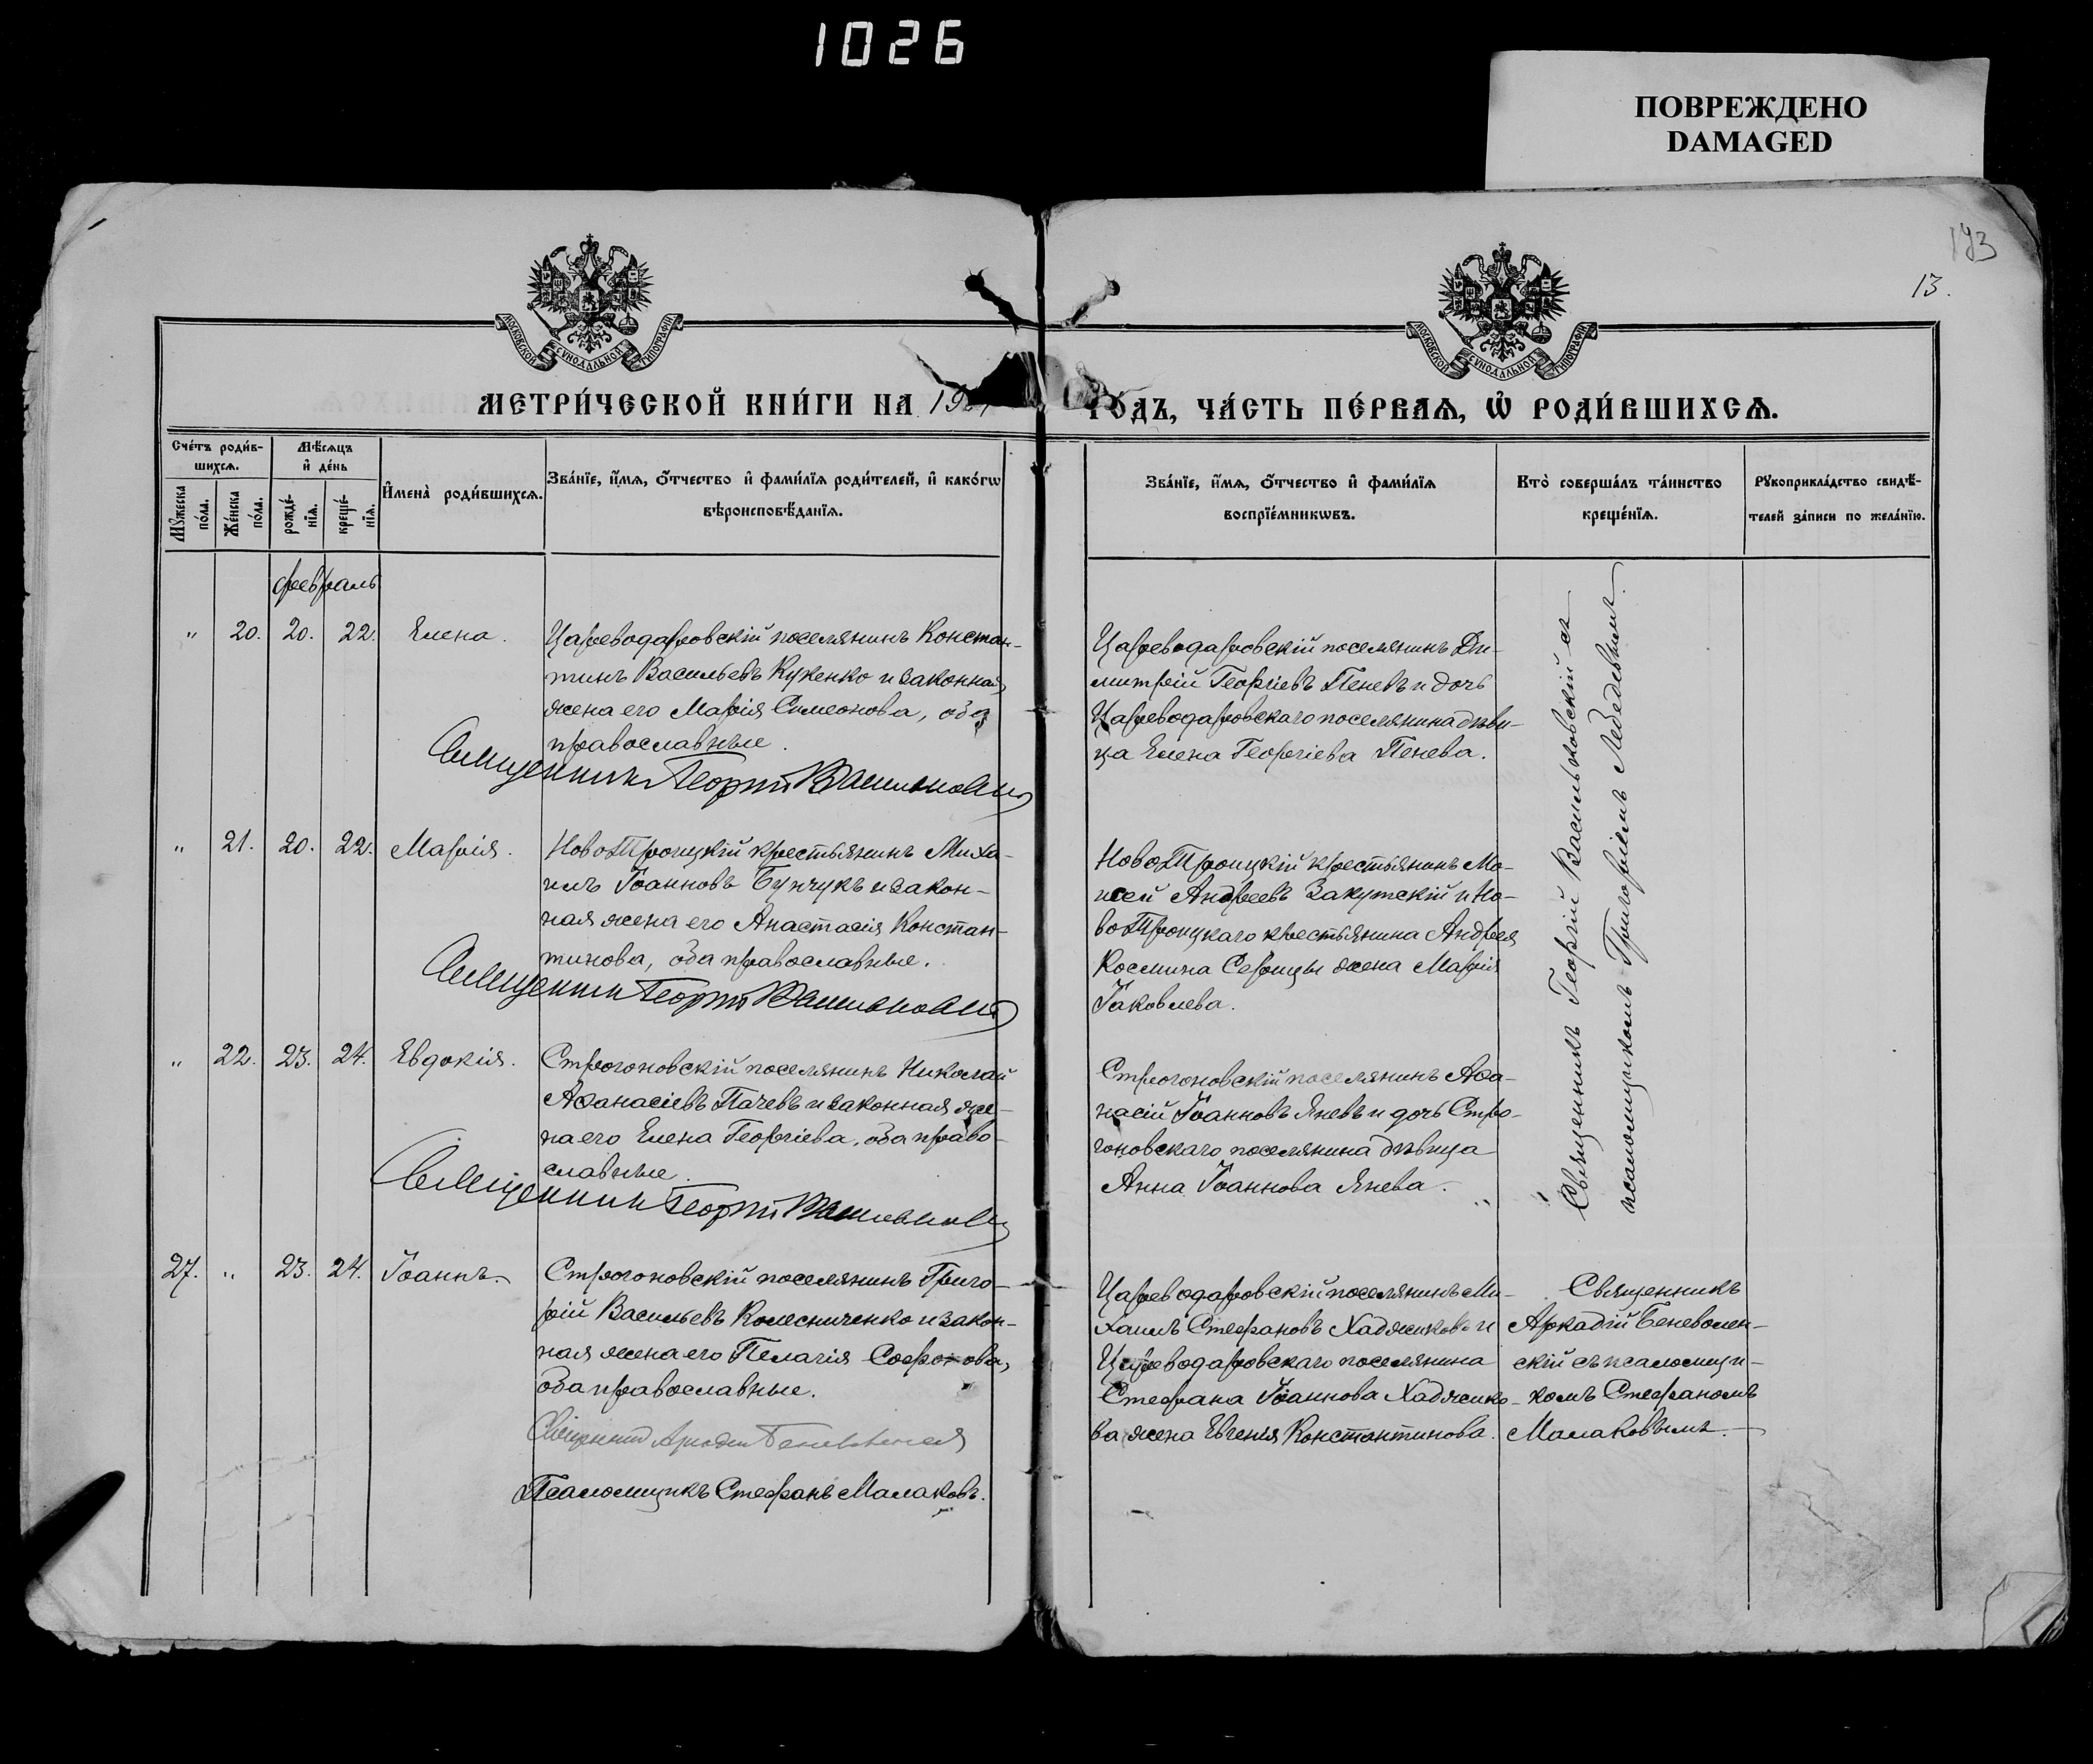 1026
ПОВРЕЖДЕНО
DAMAGED
173
13.
МОСКОВСКОЙ СѴНОДАЛЬНОЙ ТИПОГРАФІИ
МОСКОВСКОЙ СѴНОДАЛЬНОЙ ТИПОГРАФІИ
МЕТРИ́ЧЕСКОЙ КНИ́ГИ НА
ГО́ДЪ, ЧА́СТЬ ПЕ́РВАѦ, Ѡ҆ РОДИ́ВШИХСѦ.
Сче́тъ роди́в-
шихсѧ.
Мꙋ́жеска по́ла.
Же́нска по́ла.
Мѣ́сѧцъ
и҆ де́нь
рожде́-
нїѧ.
креще́-
нїѧ.
И҆мена̀ роди́вшихсѧ.
Зва́нїе, и҆́мѧ, ѻ҆́тчество и҆ фами́лїѧ роди́телей, и҆ како́гѡ
вѣроисповѣ́данїѧ.
Зва́нїе, и҆́мѧ, ѻ҆́тчество и҆ фами́лїѧ
воспрїе́мникѡвъ.
Кто̀ соверша́лъ та́инство
креще́нїѧ.
Рꙋкоприкла́дство свидѣ́-
телей за́писи по жела́нїю.
февраль
" 20. 20. 22. Елена.
Цареводаровскій поселянинъ Констан-
тинъ Васильевъ Куженко и законная
жена его Марія Симеонова, оба
православные.
Священникъ Георгій Васильковскій
Цареводаровскій поселянинъ Ди-
митрій Георгіевъ Пеневъ и дочь
Цареводаровскаго поселянина дѣви-
ца Елена Георгіева Пенева.
Священникъ Георгій Васильковскій съ
псаломщикомъ Григоріемъ Лебедевымъ.
" 21. 20. 22. Марія.
НовоТроицкій крестьянинъ Миха-
илъ Іоанновъ Бунчукъ и закон-
ная жена его Анастасія Констан-
тинова, оба православные.
Священникъ Георгій Васильковскій
НовоТроицкій крестьянинъ Мо-
исей Андреевъ Закутскій и Но-
воТроицкаго крестьянина Андрея
Космина Серомцы жена Марія
Іаковлева.
" 22. 23. 24. Евдокія.
Строгоновскій поселянинъ Николай
Аѳанасіевъ Пачевъ и законная же-
на его Елена Георгіева, оба право-
славные.
Священникъ Георгій Васильковскій
Строгоновскій поселянинъ Аѳа-
насій Іоанновъ Яневъ и дочь Стро-
гоновскаго поселянина дѣвица
Анна Іоаннова Янева.
27. " 23. 24. Іоаннъ.
Строгоновскій поселянинъ Григо-
рій Васильевъ Колесниченко и закон-
ная жена его Пелагія Софронова,
оба православные.
Священникъ Аркадій Беневоленскій
Псаломщикъ Стефанъ Малаковъ.
Цареводаровскій поселянинъ Ми-
хаилъ Стефановъ Хаджиковъ и
Цареводаровскаго поселянина
Стефана Іоаннова Хаджико-
ва жена Евгенія Константинова.
Священникъ
Аркадій Беневолен-
скій съ псаломщи-
комъ Стефаномъ
Малаковымъ.